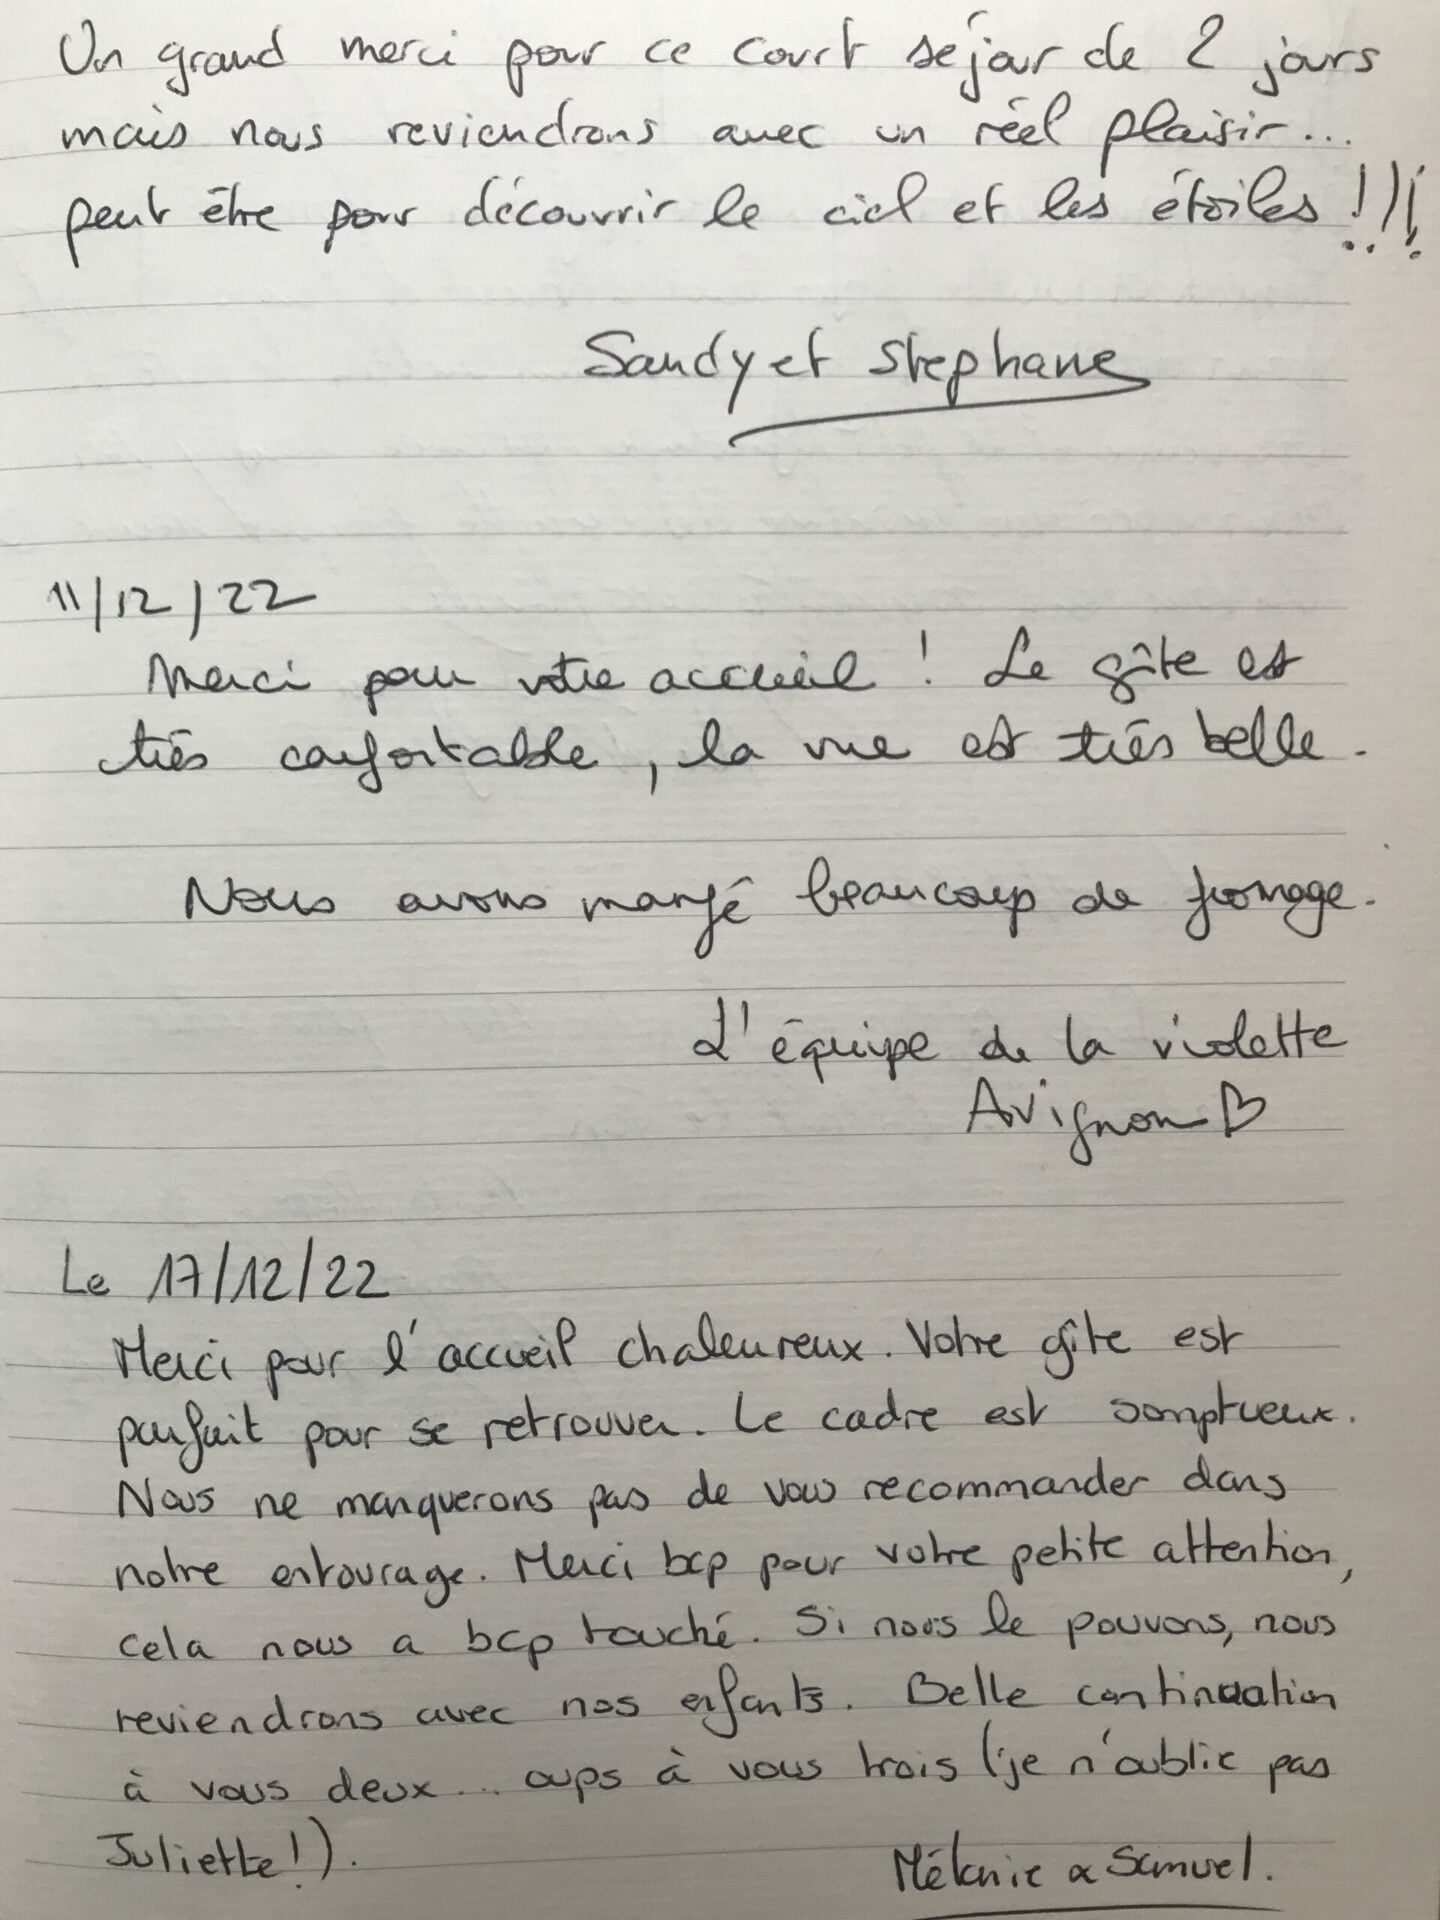 Un grand merci pour ce court séjour de 2 jours
mais nous reviendrons avec un réel plaisir...
peut être pour découvrir le ciel et les étoiles !!!
Sandy et Stephane
11/12/22
Merci pour votre accueil ! Le gîte est
très confortable, la vue est très belle.
Nous avons mangé beaucoup de fromage.
L'équipe de la violette
Avignon ♡
Le 17/12/22
Merci pour l'accueil chaleureux. Votre gîte est
parfait pour se retrouver. Le cadre est somptueux.
Nous ne manquerons pas de vous recommander dans
notre entourage. Merci bcp pour votre petite attention,
cela nous a bcp touché. Si nous le pouvons, nous
reviendrons avec nos enfants. Belle continuation
à vous deux... oups à vous trois (je n'oublie pas
Juliette!).
Mélanie & Samuel.